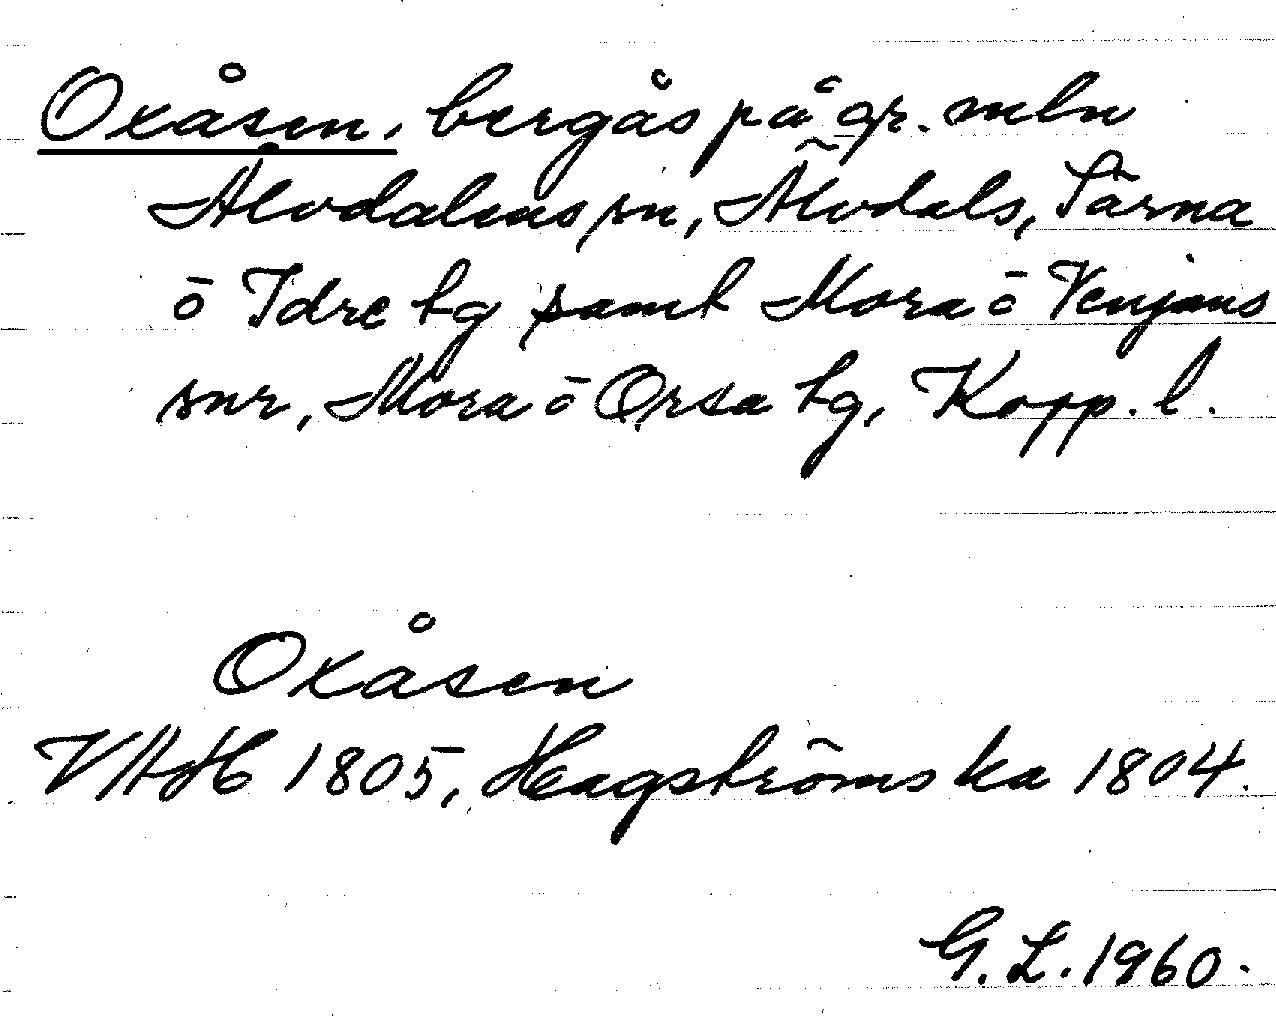 Oxåsen, bergås på gr. mln
Älvdalens sn, Älvdals, Särna
ō Idre tg samt Mora ō Venjans
snr, Mora ō Orsa tg, Kopp. l.
Oxåsen
VAH 1805, Hagströms ka 1804.
G. L. 1960.